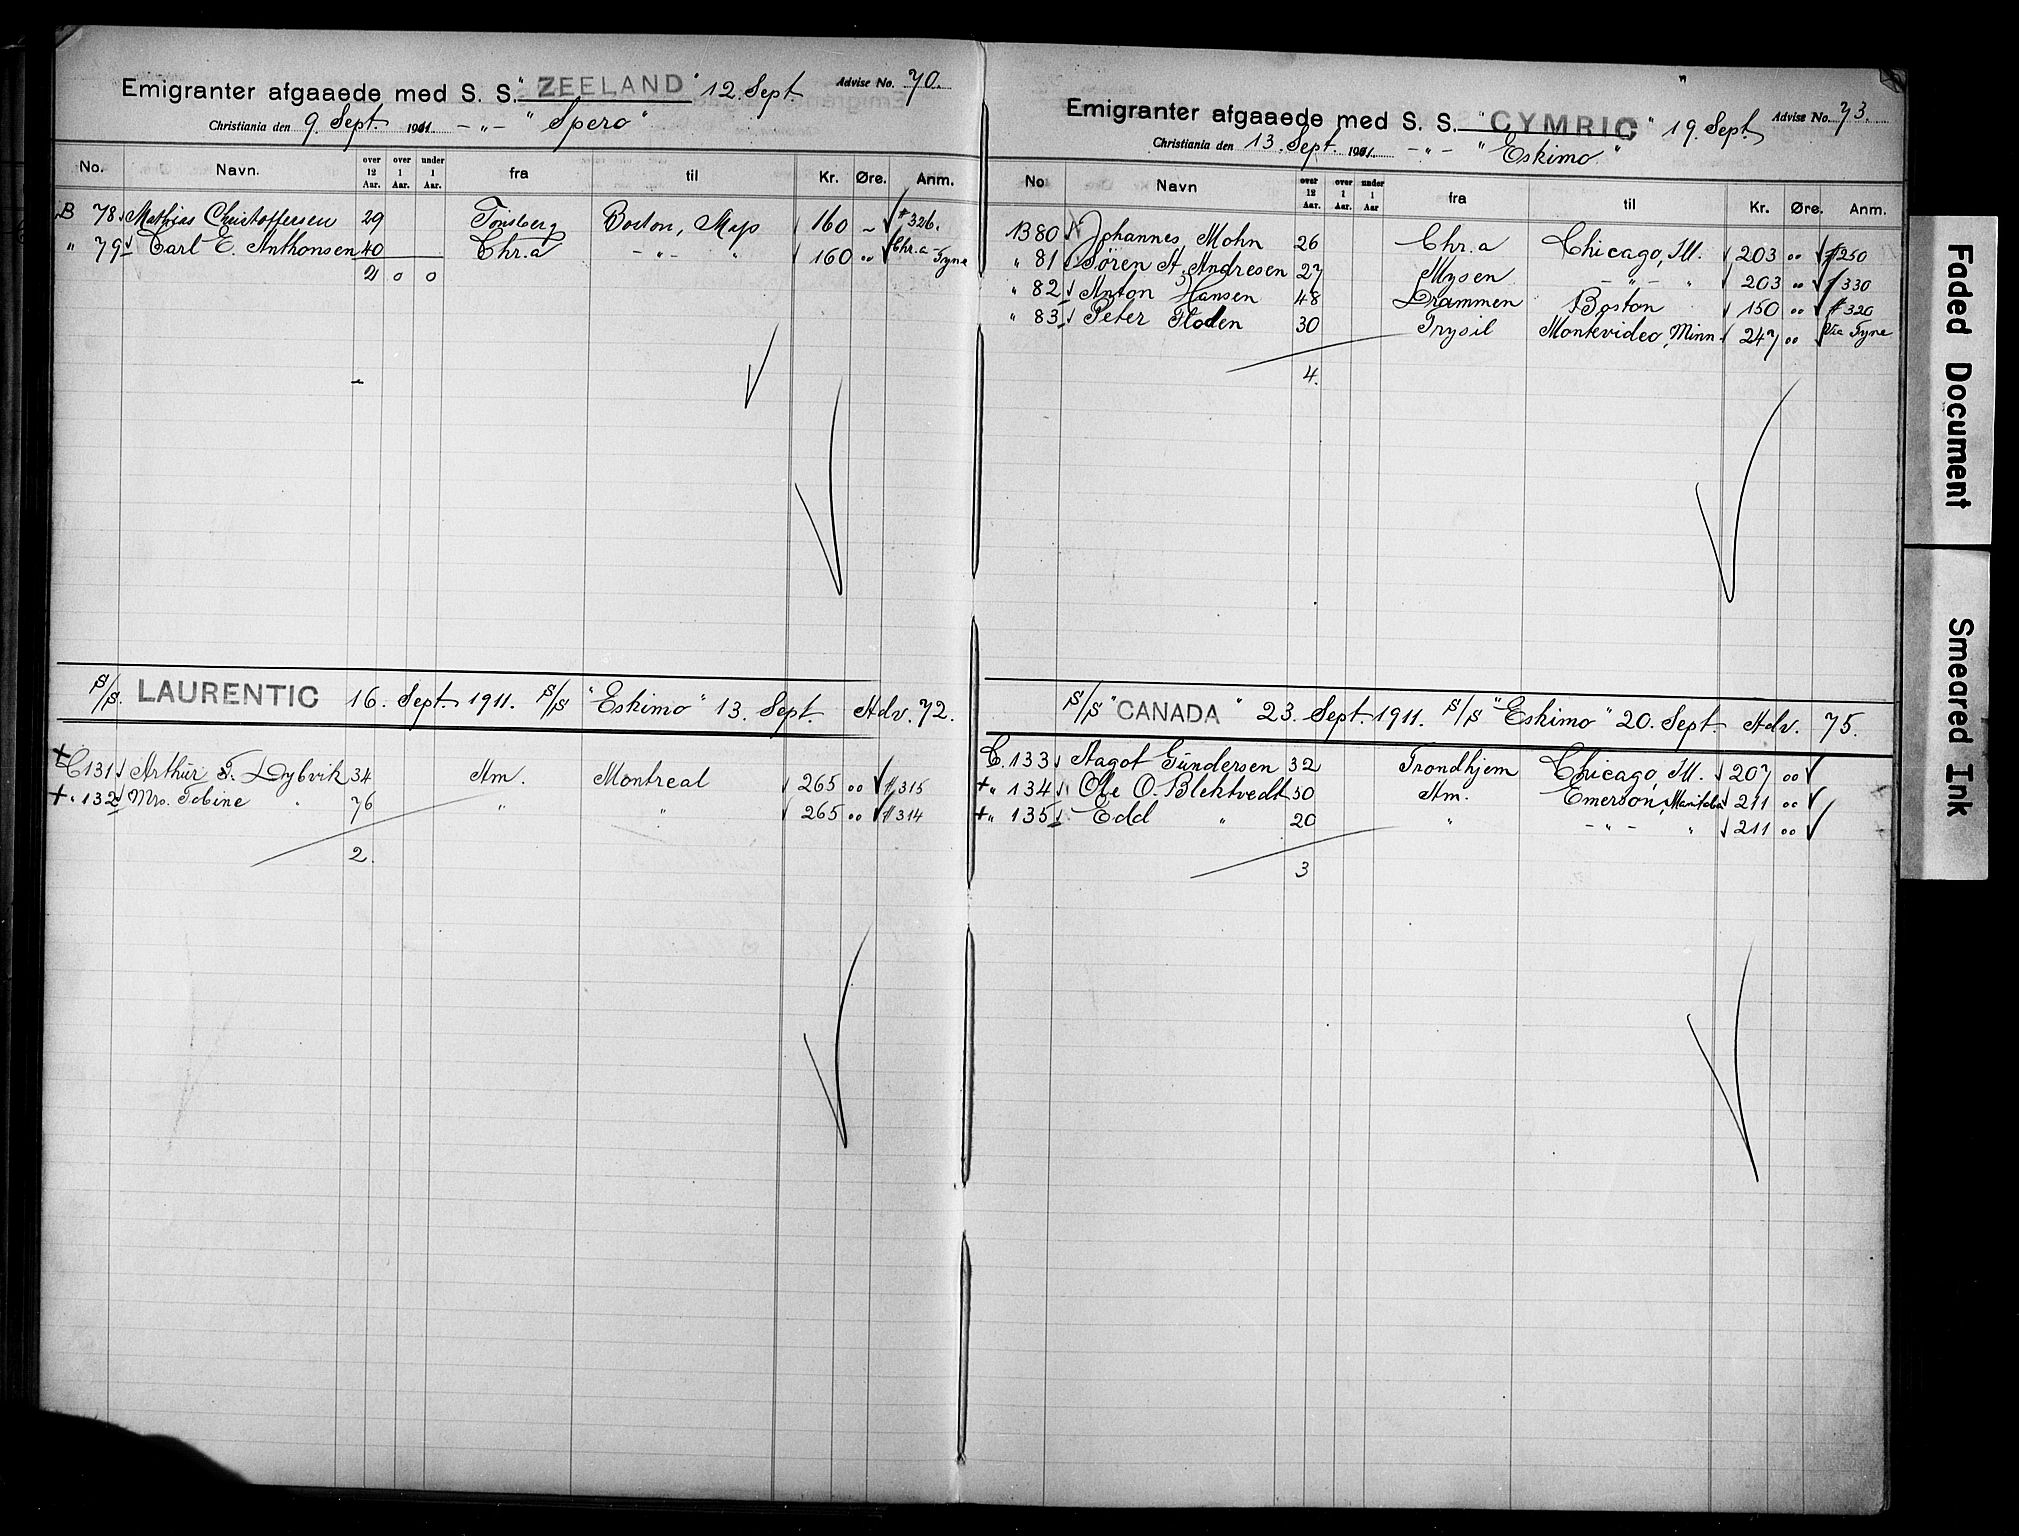 Emigranter afgaaede med S. S. "ZEELAND" 12. Sept Advise No. 70.
Christiania den 9. Sept. 1911 - " - "Spero"
No. Navn. over 12 Aar. over 1 Aar. under 1 Aar. fra til Kr. Øre. Anm.
B 78 Mathias Christoffersen 29 Tönsberg Boston, Mass 160 - # 326.
" 79 Carl E. Anthonsen 40 Chr.a - " - " 160 " Chr.a - Tyne
2 0 0
S/S. LAURENTIC 16. Sept. 1911. S/S "Eskimo" 13. Sept Adv. 72.
+ C131 Arthur F. Dybvik 34 Am. Montreal 265 00 # 315
+ " 132 Mrs. Tobine " 76 " " 265 00 # 314
2.
Emigranter afgaaede med S. S. "CYMRIC" 19. Sept. Advise No. 73.
Christiania den 13. Sept. 1911. - " - "Eskimo"
No Navn over 12 Aar. over 1 Aar. under 1 Aar fra til Kr. Øre. Anm.
B 80 Johannes Mohn 26 Chr.a Chicago, Ill. 203 00 # 250
" 81 Sören A. Andresen 27 Mysen - " - " 203 00 # 330
" 82 Anton Hansen 48 Drammen Boston 150 00 # 320
" 83 Peter Floden 30 Trysil Montevideo, Minn 247 00 Via Tyne
4.
S/S "CANADA" 23. Sept. 1911. S/S "Eskimo" 20. Sept. Adv. 75.
C. 133 Aagot Gundersen 32 Trondhjem Chicago, Ill. 207 00
+ " 134 Ole O. Blektvedt 50 Am. Emerson, Manitoba 211 00
+ " 135 Edd " 20 " - " - " 211 00
3
Faded Document
Smeared Ink